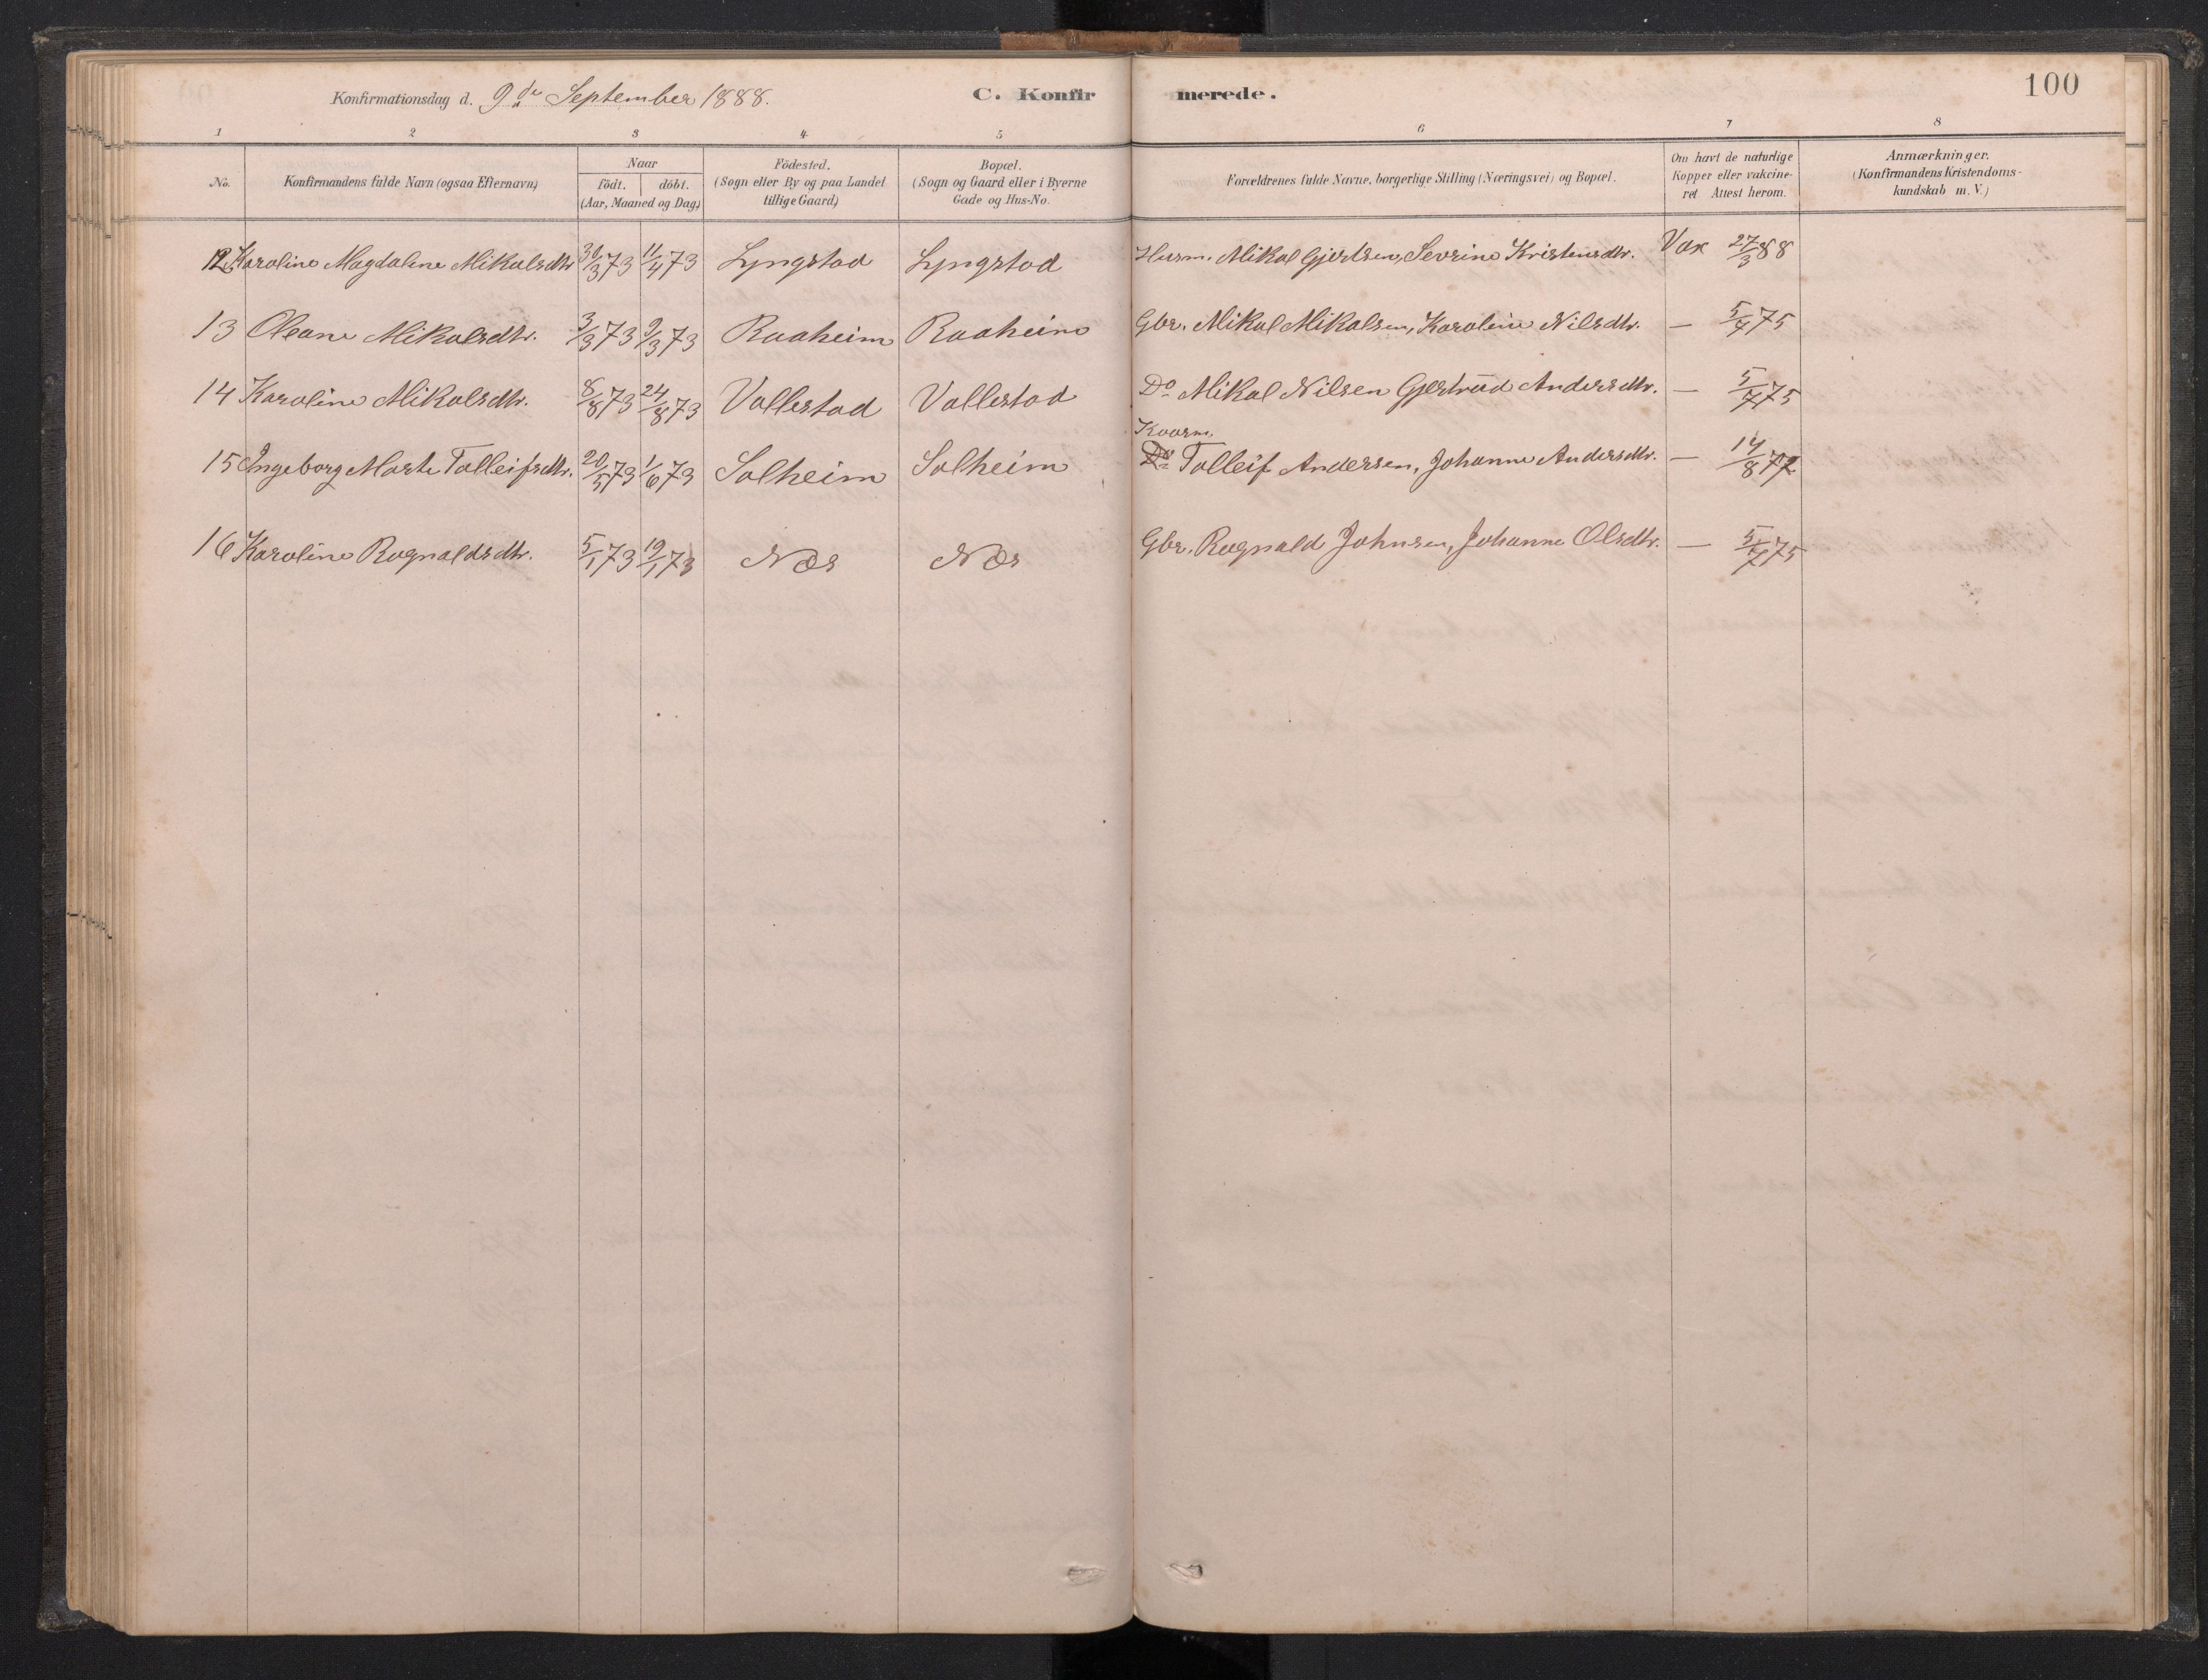 100
Konfirmationsdag d. 9de September 1888. C. Konfirmerede.
1 2 3 4 5 6 7 8
No. Konfirmandens fulde Navn (ogsaa Efternavn) Naar födt. döbt. (Aar, Maaned og Dag) Födested. (Sogn eller By og paa Landet tillige Gaard) Bopæl. (Sogn og Gaard eller i Byerne Gade og Hus-No. Forældrenes fulde Navne, borgerlige Stilling (Næringsvei) og Bopæl. Om havt de naturlige Kopper eller vakcineret Attest herom. Anmærkninger. (Konfirmandens Kristendomskundskab m. V.)
12 Karoline Magdalene Mikalsdtr 30/3 73 11/4 73 Lyngstad Lyngstad Husm. Mikal Gjertsen, Sevrine Kristensdtr. Vax 27/3 88
13 Oleane Mikalsdtr. 3/3 73 9/3 73 Raaheim Raaheim Gbr. Mikal Mikalsen, Karoline Nilsdtr. — 5/7 75
14 Karoline Mikalsdtr. 8/8 73 24/8 73 Vallestad Vallestad Do Mikal Nilsen Gjertrud Andersdtr. — 5/7 75
Kaarm.
15 Ingeborg Marte Tolleifsdtr. 20/5 73 1/6 73 Solheim Solheim Do Tolleif Andersen, Johanne Andersdtr. — 14/8 77
16 Karoline Ragnaldsdtr. 5/1 73 19/1 73 Nes Nes Gbr. Ragnald Johnsen, Johanne Olsdtr. — 5/7 75